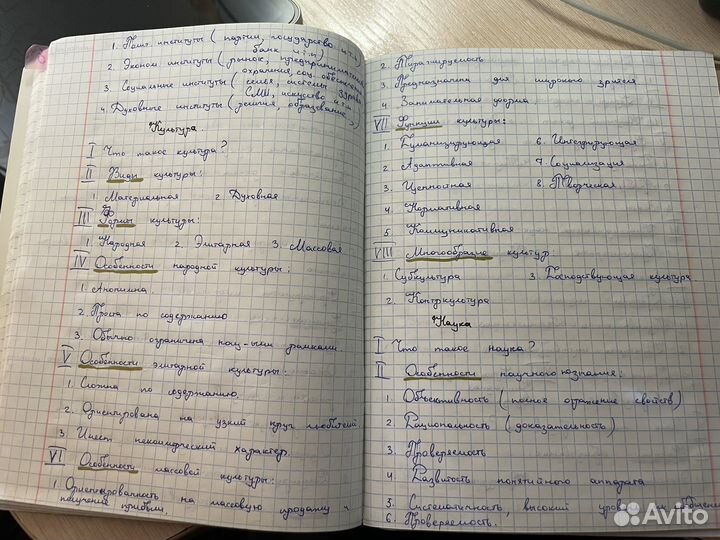 1. Полит. институты (партии, государство и т.п)
2. Эконом институты (рынок, предпринимательство
банк и т.п.)
3. Социальные институты (семья, системы здрав
охранения, соц. обеспечения
4. Духовные институты (религия, образование
СМИ, искусство и т.п.)
Культура.
I Что такое культура?
II Виды культуры:
1. Материальная 2. Духовная
III Формы культуры:
1. Народная 2. Элитарная 3. Массовая
IV Особенности народной культуры:
1. Анонимна.
2. Проста по содержанию
3. Обычно ограничена нац-ыми рамками.
V Особенности элитарной культуры:
1. Сложна по содержанию.
2. Ориентирована на узкий круг любителей
3. Имеет некоммерческий характер.
VI Особенности массовой культуры:
1. Ориентированность на массовую продажу и
получение прибыли.
2. Тиражируемость
3. Предназначена для широкого зрителя
4. Занимательная форма
VII Функции культуры:
1. Гуманизирующая 6. Интегрирующая
2. Адаптивная 7. Социализация
3. Ценностная 8. Творческая
4. Нормативная
5. Коммуникативная
VIII Многообразие культур:
1. Субкультура 3. Господствующая культура
2. Контркультура
Наука
I Что такое наука?
II Особенности научного познания:
1. Объективность (полное отражение свойств)
2. Рациональность (доказательность)
3. Проверяемость
4. Развитость понятийного аппарата
5. Систематичность, высокий уровень
6. Проверяемость.
Avito